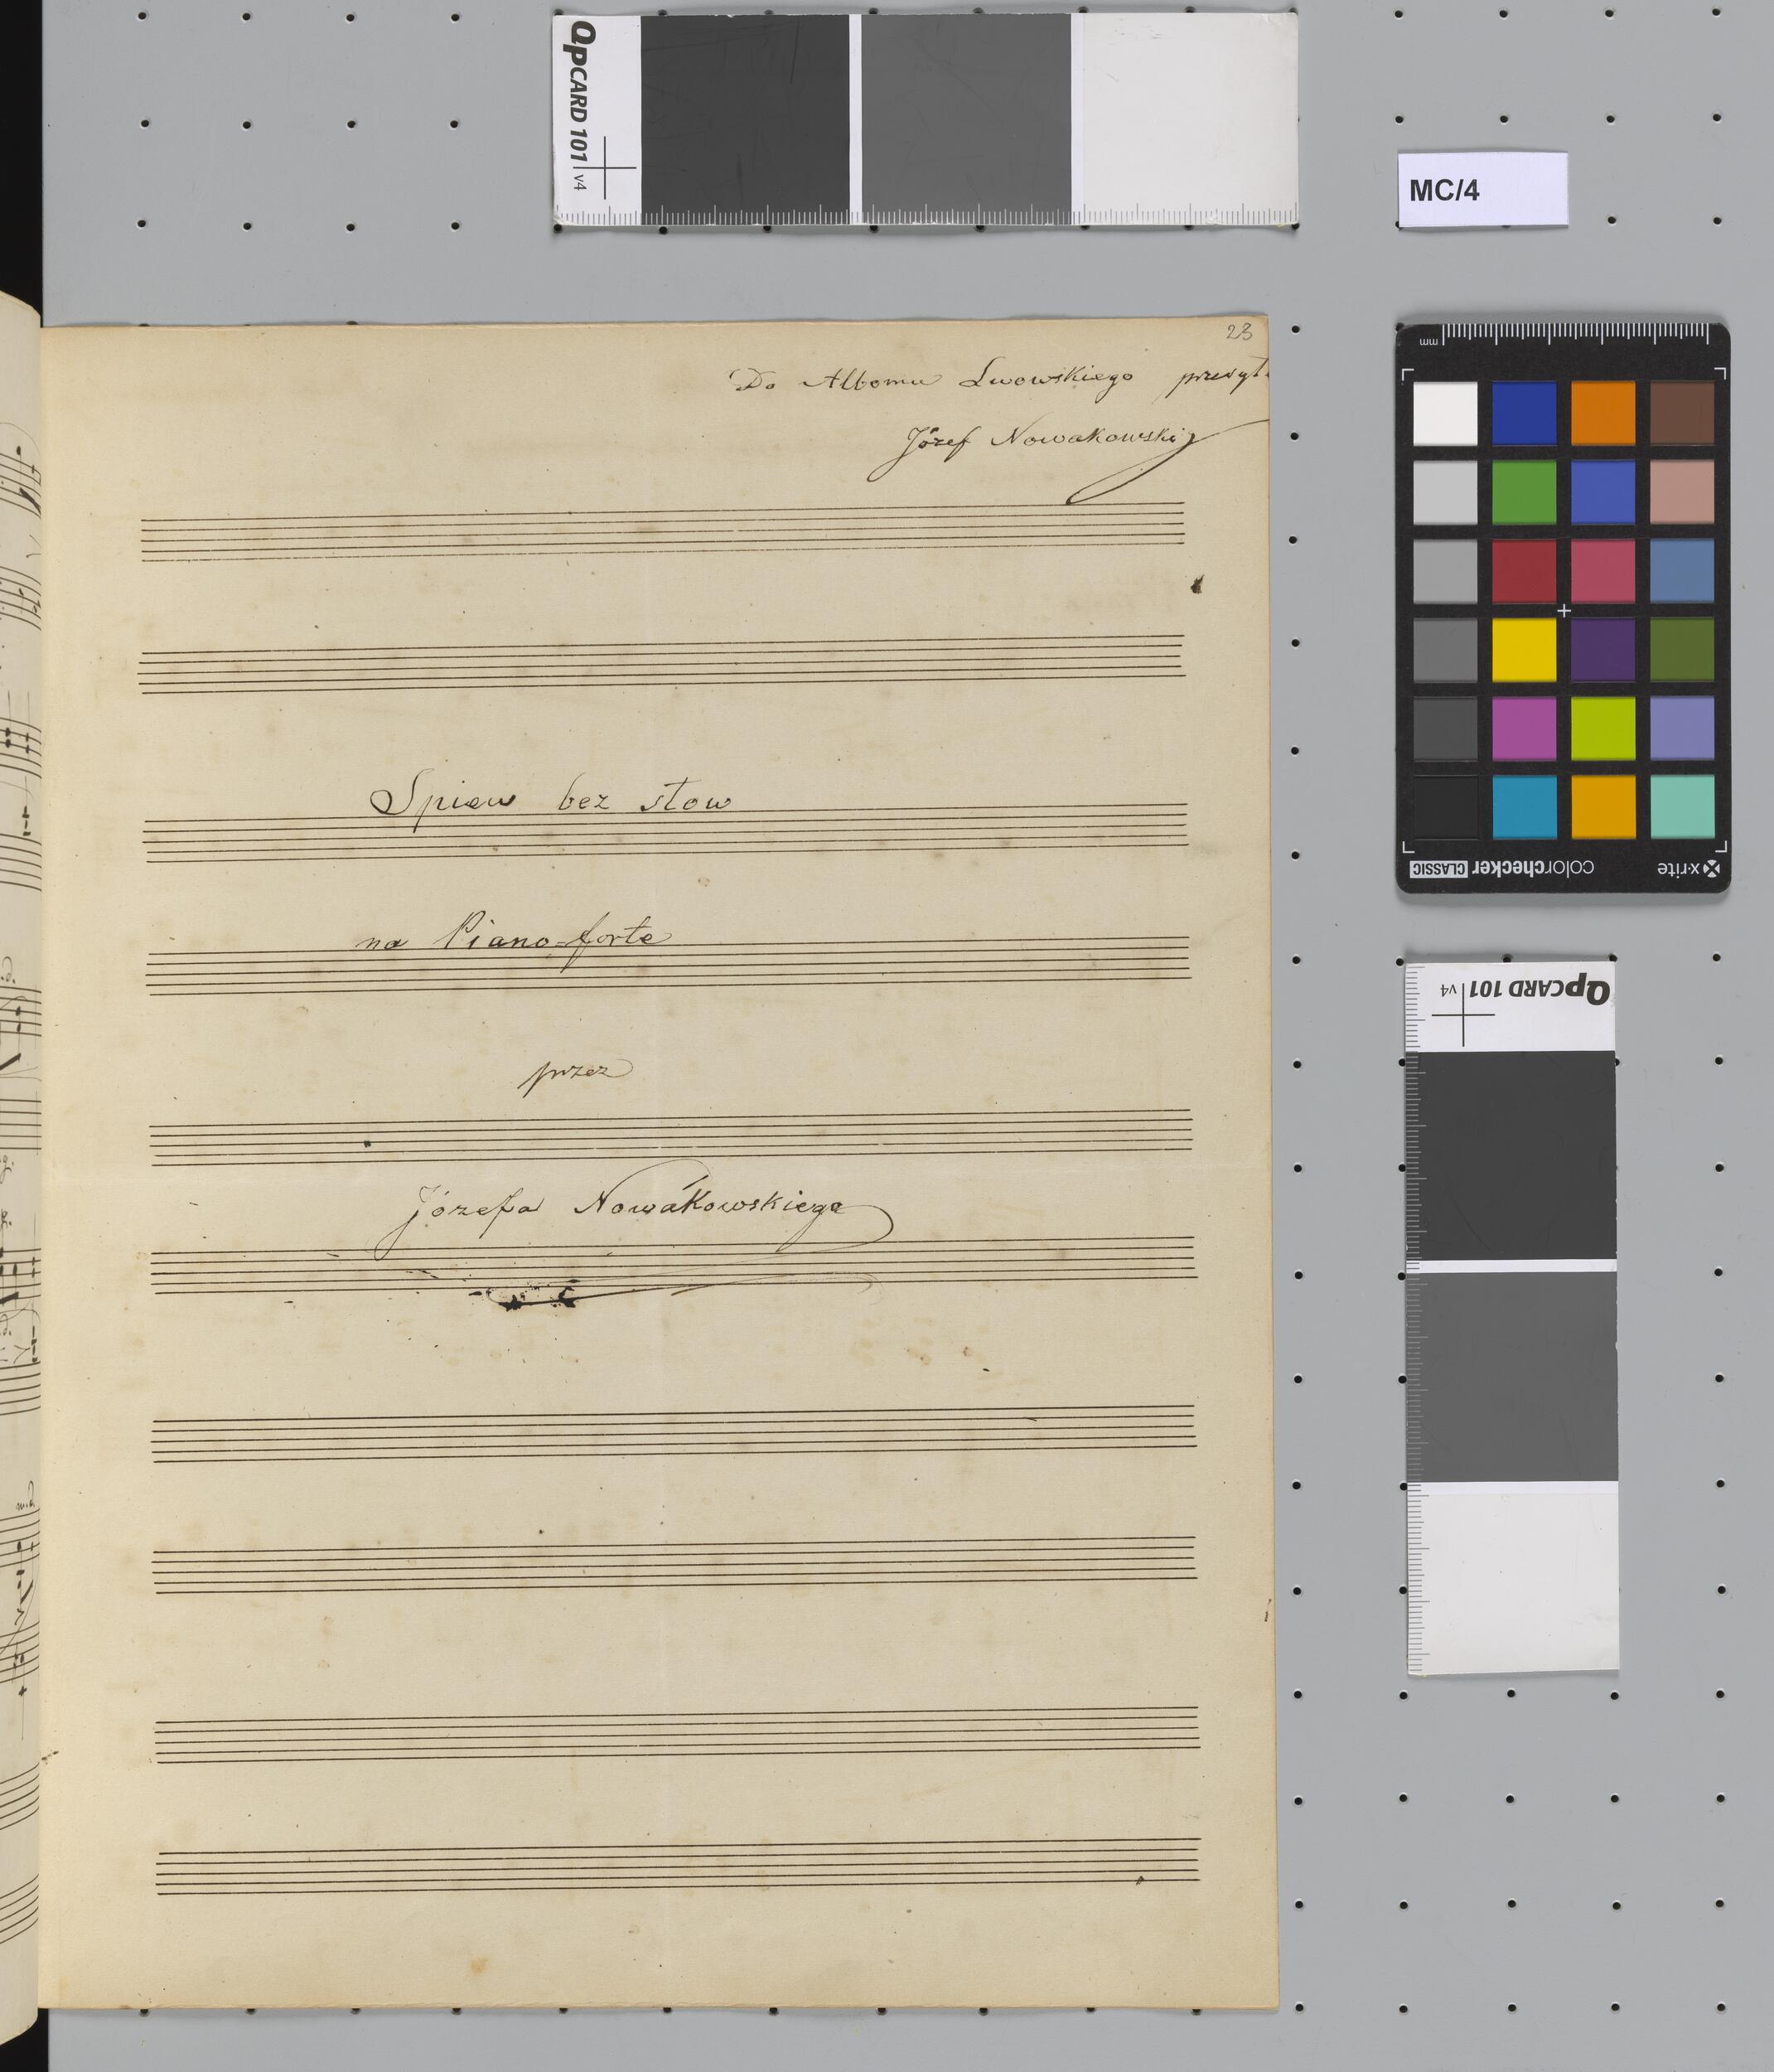 QPCARD 101 v4
MC/4
23
Do Albomu Lwowskiego przesył
Józef Nowakowski
Spiew bez słow
na Piano-forte
przez
Józefa Nowakowskiego
mm
x-rite colorchecker CLASSIC
QPCARD 101 v4